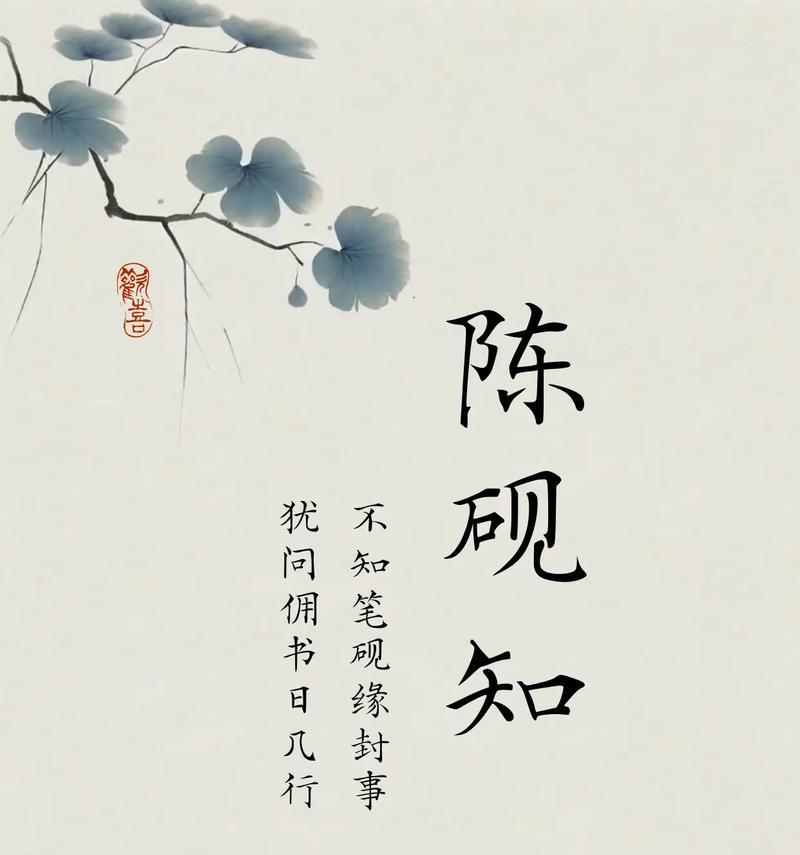 陈砚知
不知笔砚缘封事
犹问佣书日几行
歡喜